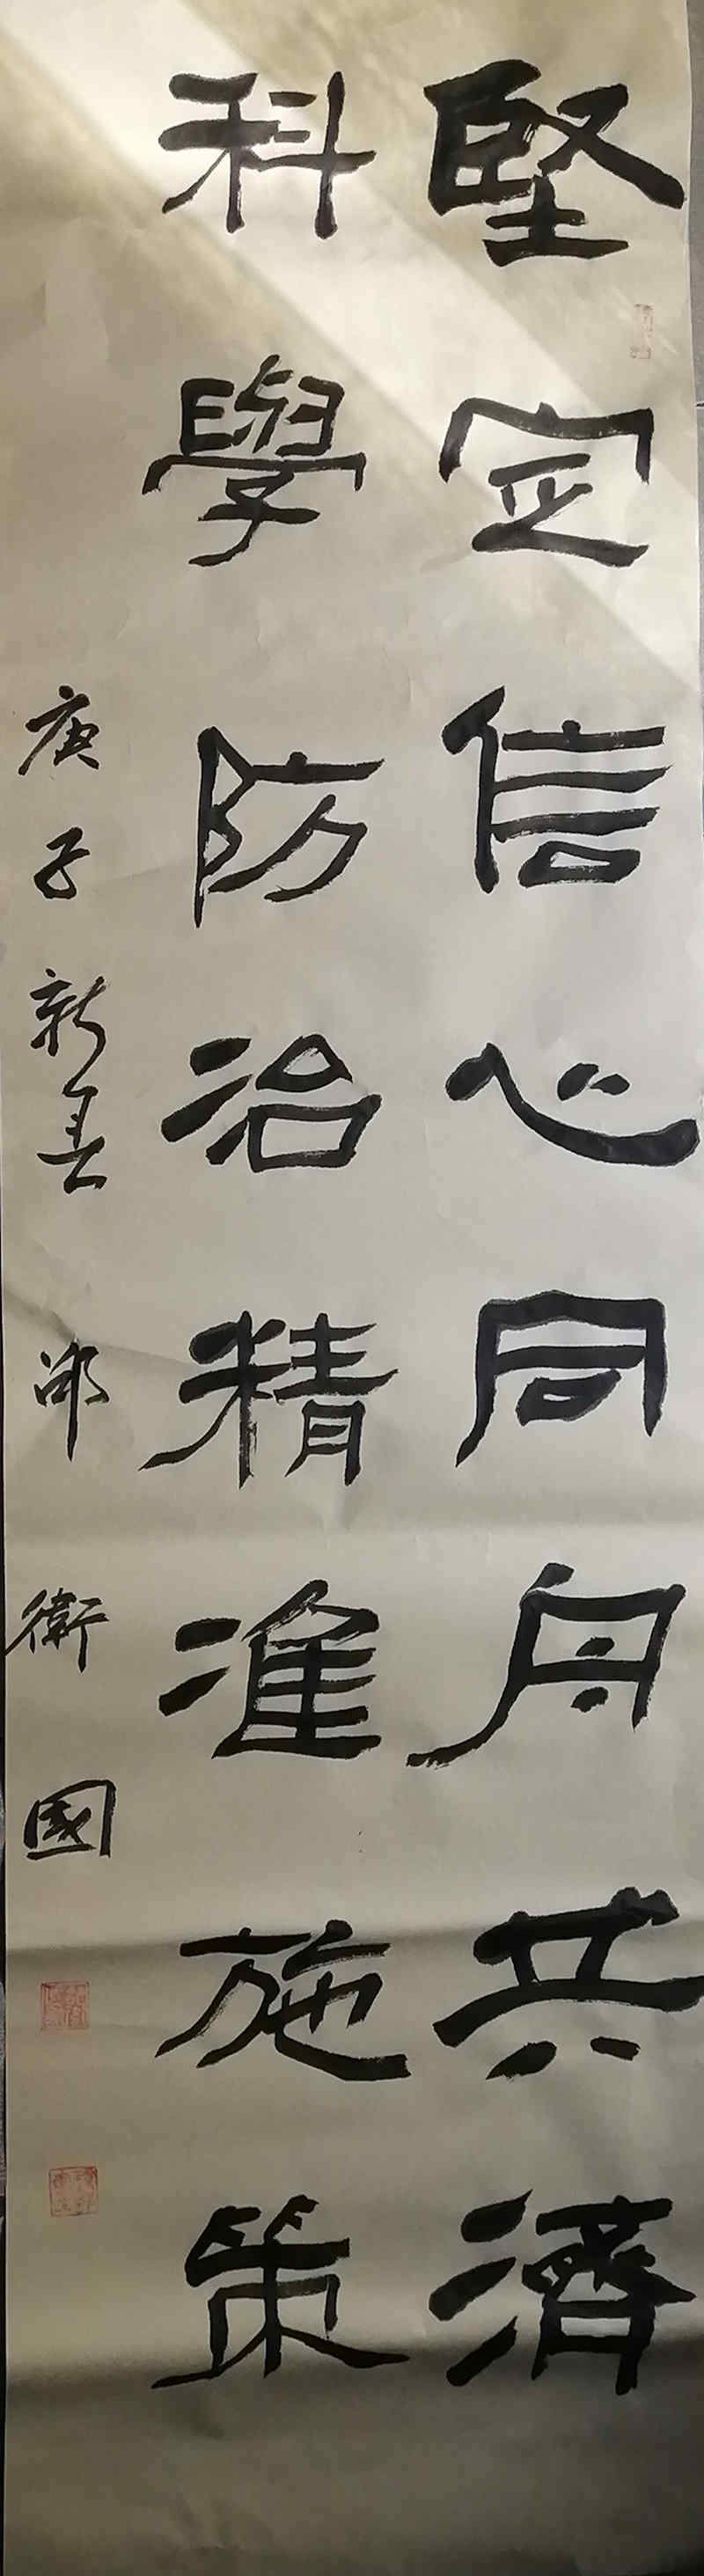 堅定信心同舟共濟
科學防治精准施策
庚子新春 邵衛國